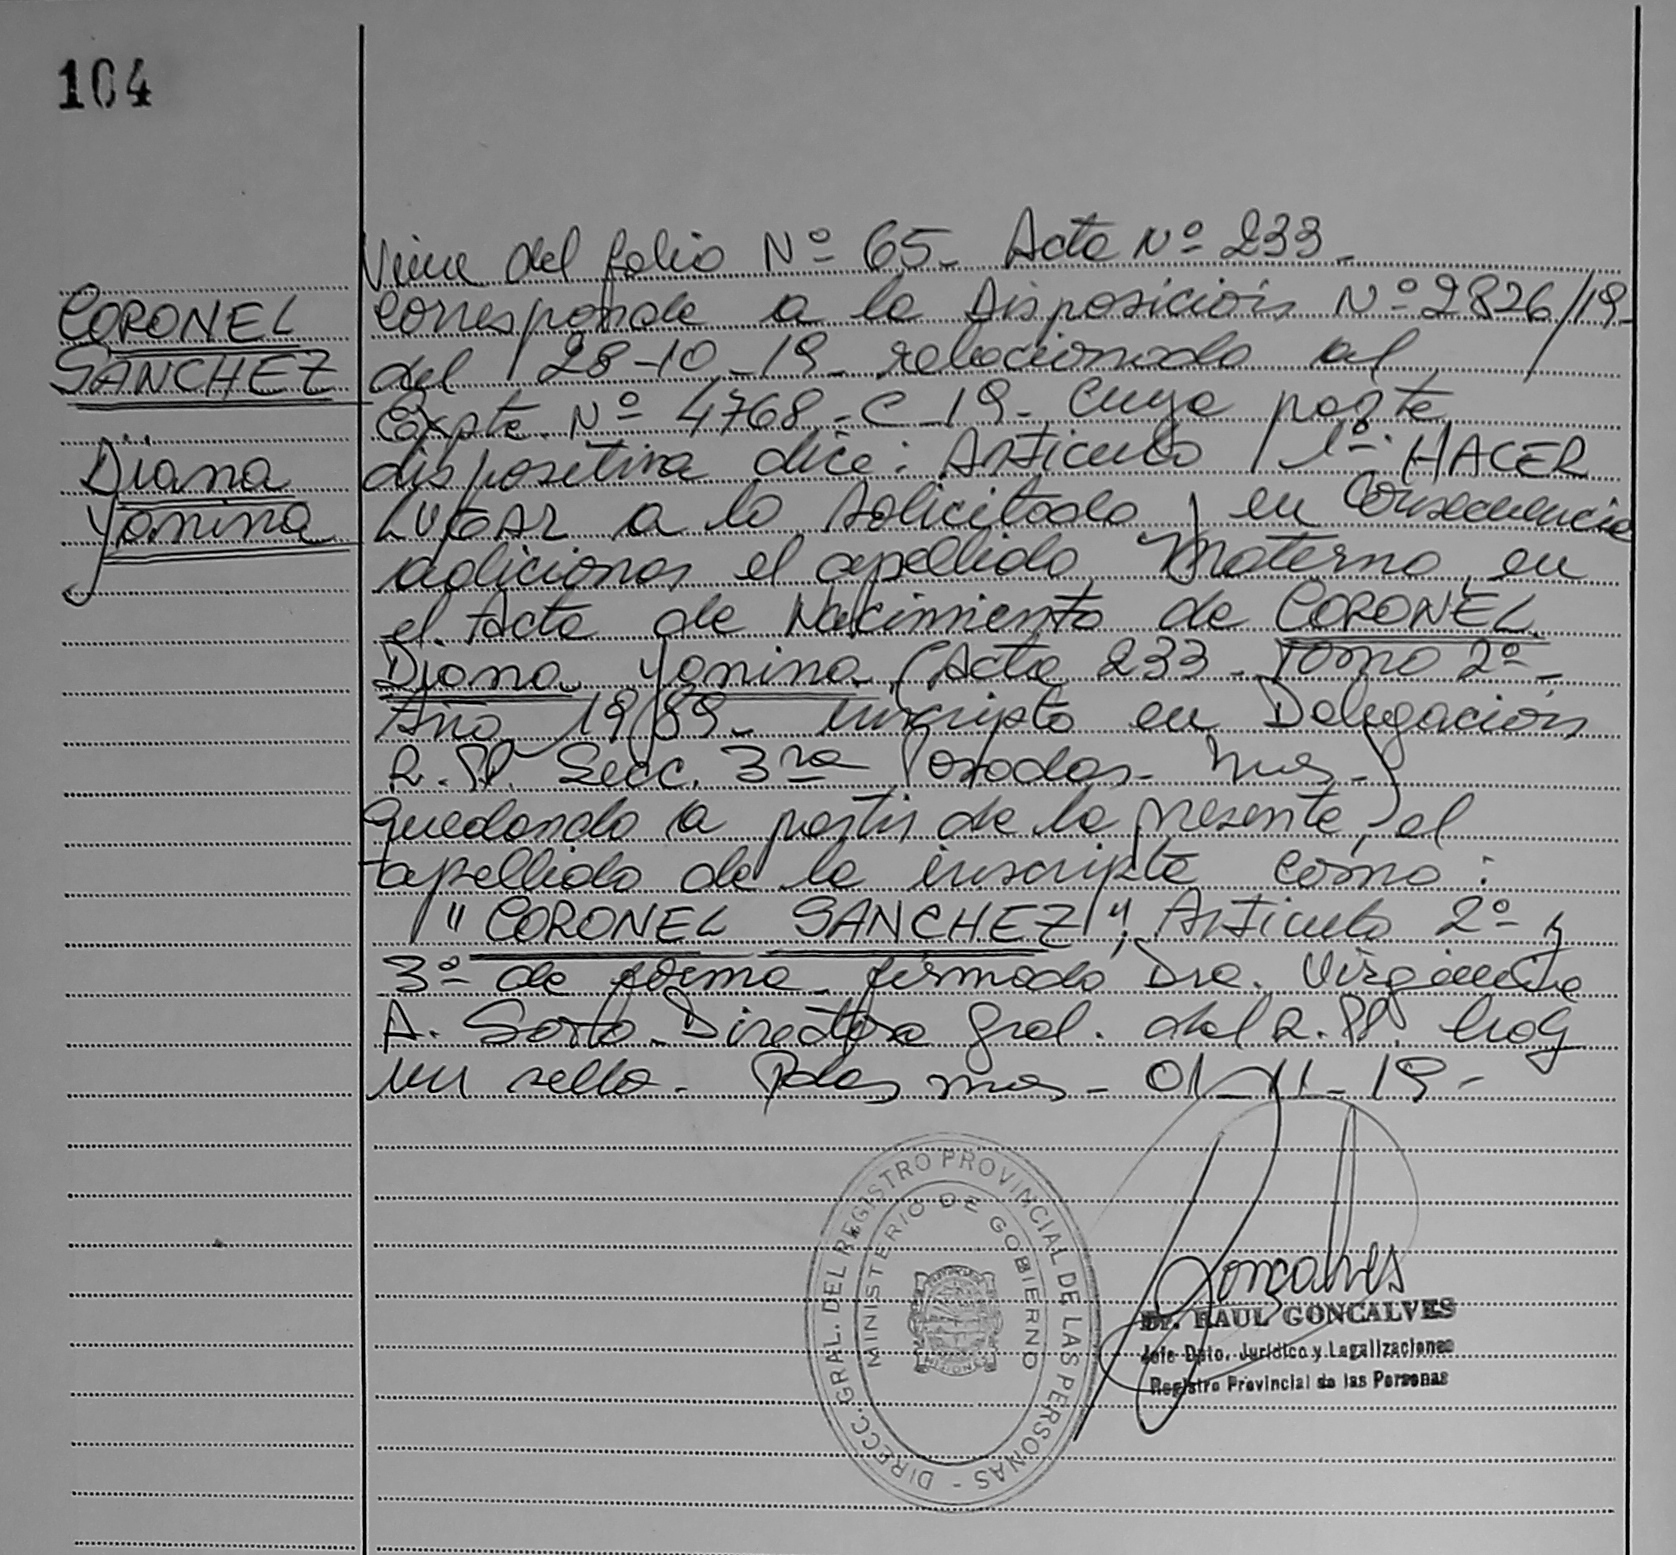 104
Viene del folio Nº 65. Acta Nº 233.
CORONEL
SANCHEZ
Diana
Yanina
Corresponde a la Disposición Nº 2826/19.
del 28-10-19 relacionado al
Expte. Nº 4768-C-19. Cuya parte
dispositiva dice: Artículo 1º HACER
LUGAR a lo Solicitado y en Consecuencia
adicionar el apellido Materno, en
el Acta de Nacimiento de CORONEL
Diana Yanina (Acta 233. Tomo 2º-
Año 1989- inscripta en Delegación
R.P.P. Secc. 3ra Posadas- Mns-)
Quedando a partir de la presente, el
apellido de la inscripta como:
"CORONEL SANCHEZ", Artículo 2º y
3º de forma. firmado Dra. Virginia
A. Directora Gral. del R.P.P. hay
un sello. Pdas mns- 01-11-19-
DIRECC. GRAL. DEL REGISTRO PROVINCIAL DE LAS PERSONAS -
MINISTERIO DE GOBIERNO
MISIONES
Goncalves
Dr. RAUL GONCALVES
Jefe Dpto. Jurídico y Legalizaciones
Registro Provincial de las Personas